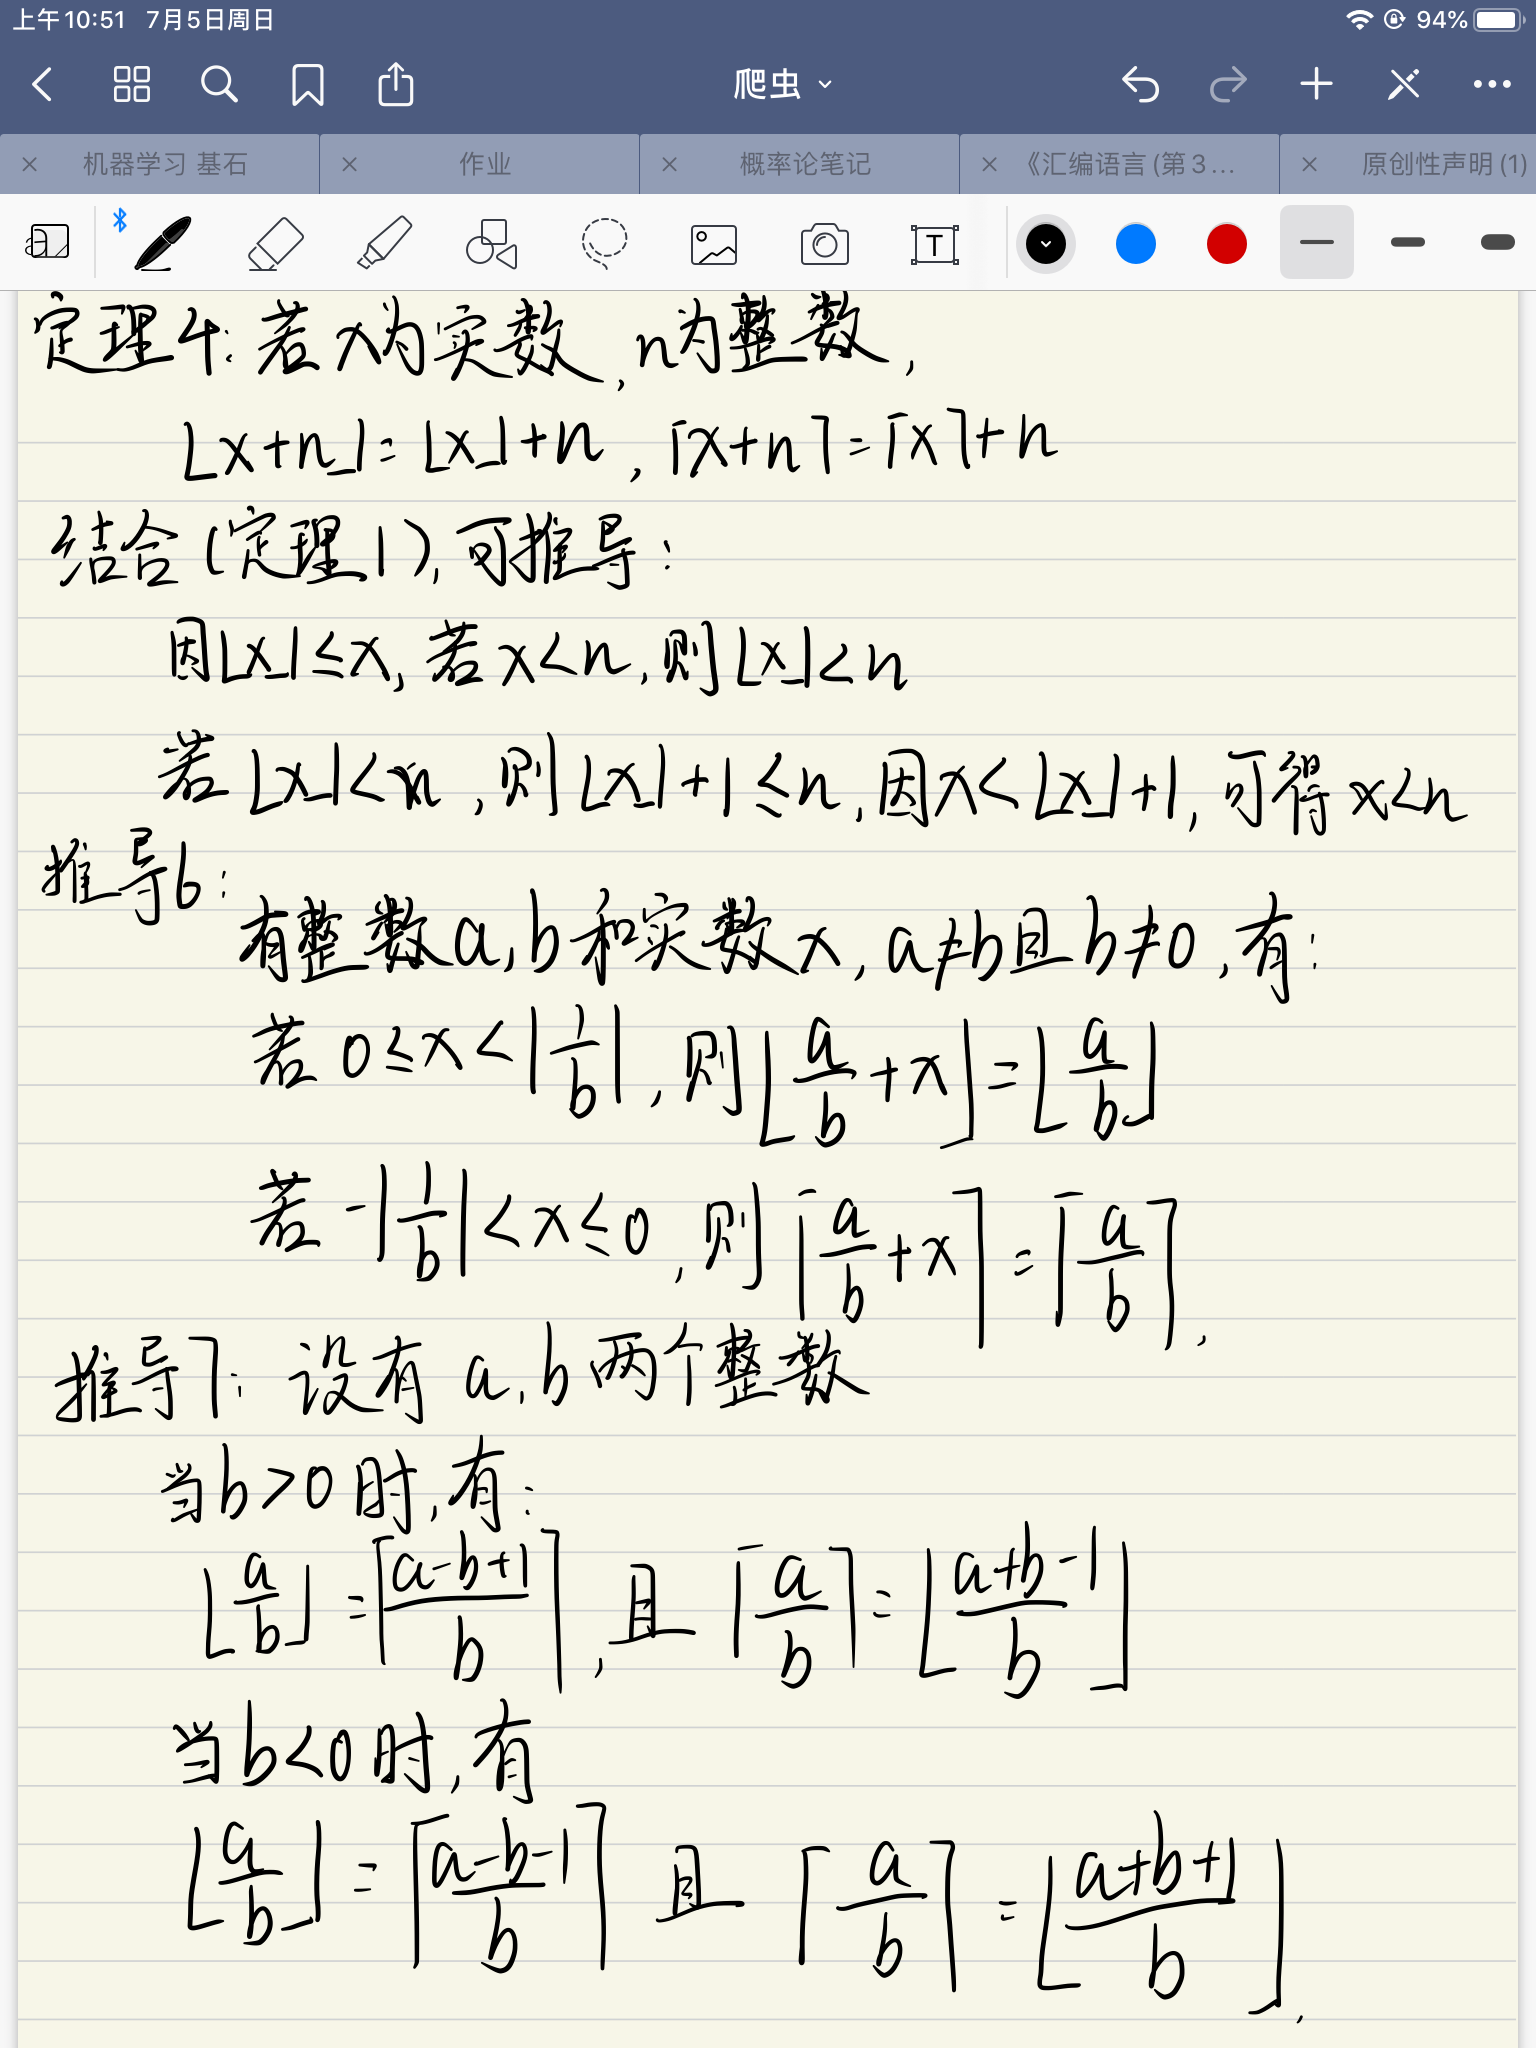 上午10:51 7月5日周日
94%
爬虫
机器学习 基石
作业
概率论笔记
《汇编语言(第3...
原创性声明(1)
a
T
定理4: 若x为实数, n为整数,
⌊x+n⌋=⌊x⌋+n, ⌈x+n⌉=⌈x⌉+n
结合(定理1),可推导:
因⌊x⌋≤x, 若x<n, 则⌊x⌋<n
若⌊x⌋<n, 则⌊x⌋+1≤n, 因x<⌊x⌋+1, 可得x<n
推导6:
有整数a,b和实数x, a≠b且b≠0, 有:
若 0≤x<|1/b|, 则⌊a/b+x⌋=⌊a/b⌋
若 -|1/b|<x≤0, 则⌈a/b+x⌉=⌈a/b⌉.
推导7: 设有a,b两个整数
当b>0时,有:
⌊a/b⌋=⌈(a-b+1)/b⌉, 且 ⌈a/b⌉=⌊(a+b-1)/b⌋
当b<0时,有
⌊a/b⌋=⌈(a-b-1)/b⌉ 且 ⌈a/b⌉=⌊(a+b+1)/b⌋.